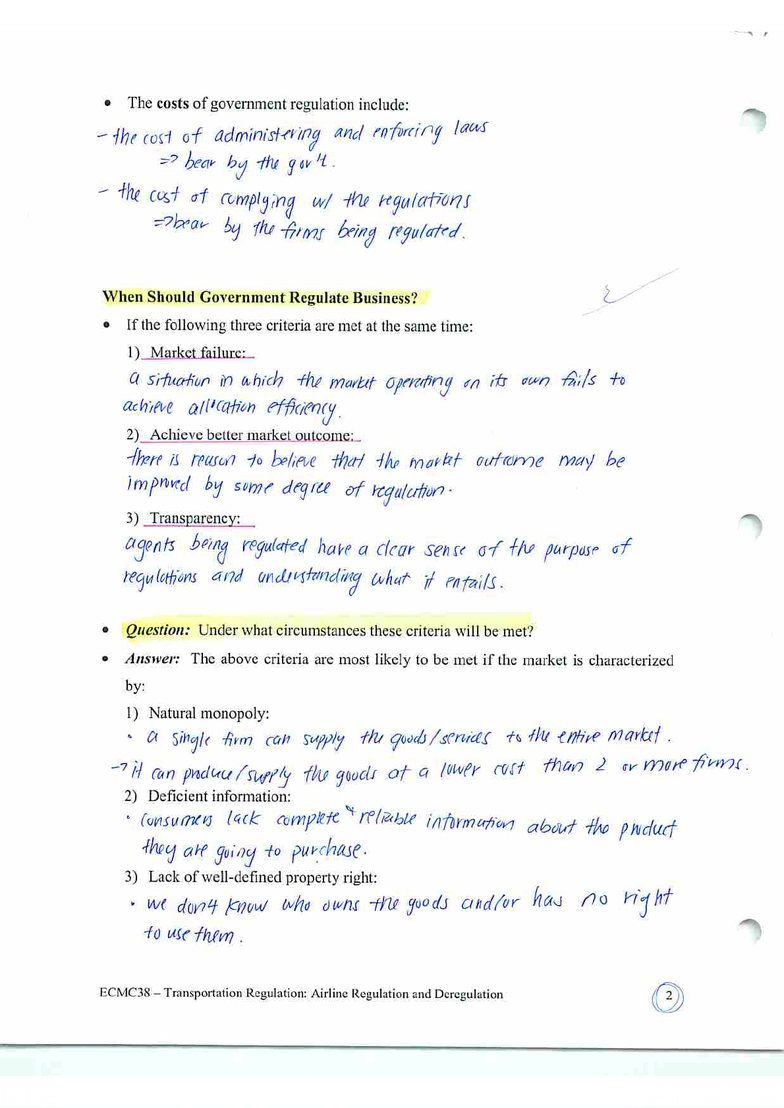 • The costs of government regulation include:
- the cost of administering and enforcing laws
=> bear by the gov't.
- the cost of complying w/ the regulations
=> bear by the firms being regulated.
When Should Government Regulate Business?
• If the following three criteria are met at the same time:
1) Market failure:
a situation in which the market operating on its own fails to
achieve allocation efficiency.
2) Achieve better market outcome:
there is reason to believe that the market outcome may be
improved by some degree of regulation.
3) Transparency:
agents being regulated have a clear sense of the purpose of
regulations and understanding what it entails.
• Question: Under what circumstances these criteria will be met?
• Answer: The above criteria are most likely to be met if the market is characterized
by:
1) Natural monopoly:
• a single firm can supply the goods/services to the entire market.
→ it can produce/supply the goods at a lower cost than 2 or more firms.
2) Deficient information:
• consumers lack complete & reliable information about the product
they are going to purchase.
3) Lack of well-defined property right:
• we don't know who owns the goods and/or has no right
to use them.
ECMC38 – Transportation Regulation: Airline Regulation and Deregulation
2